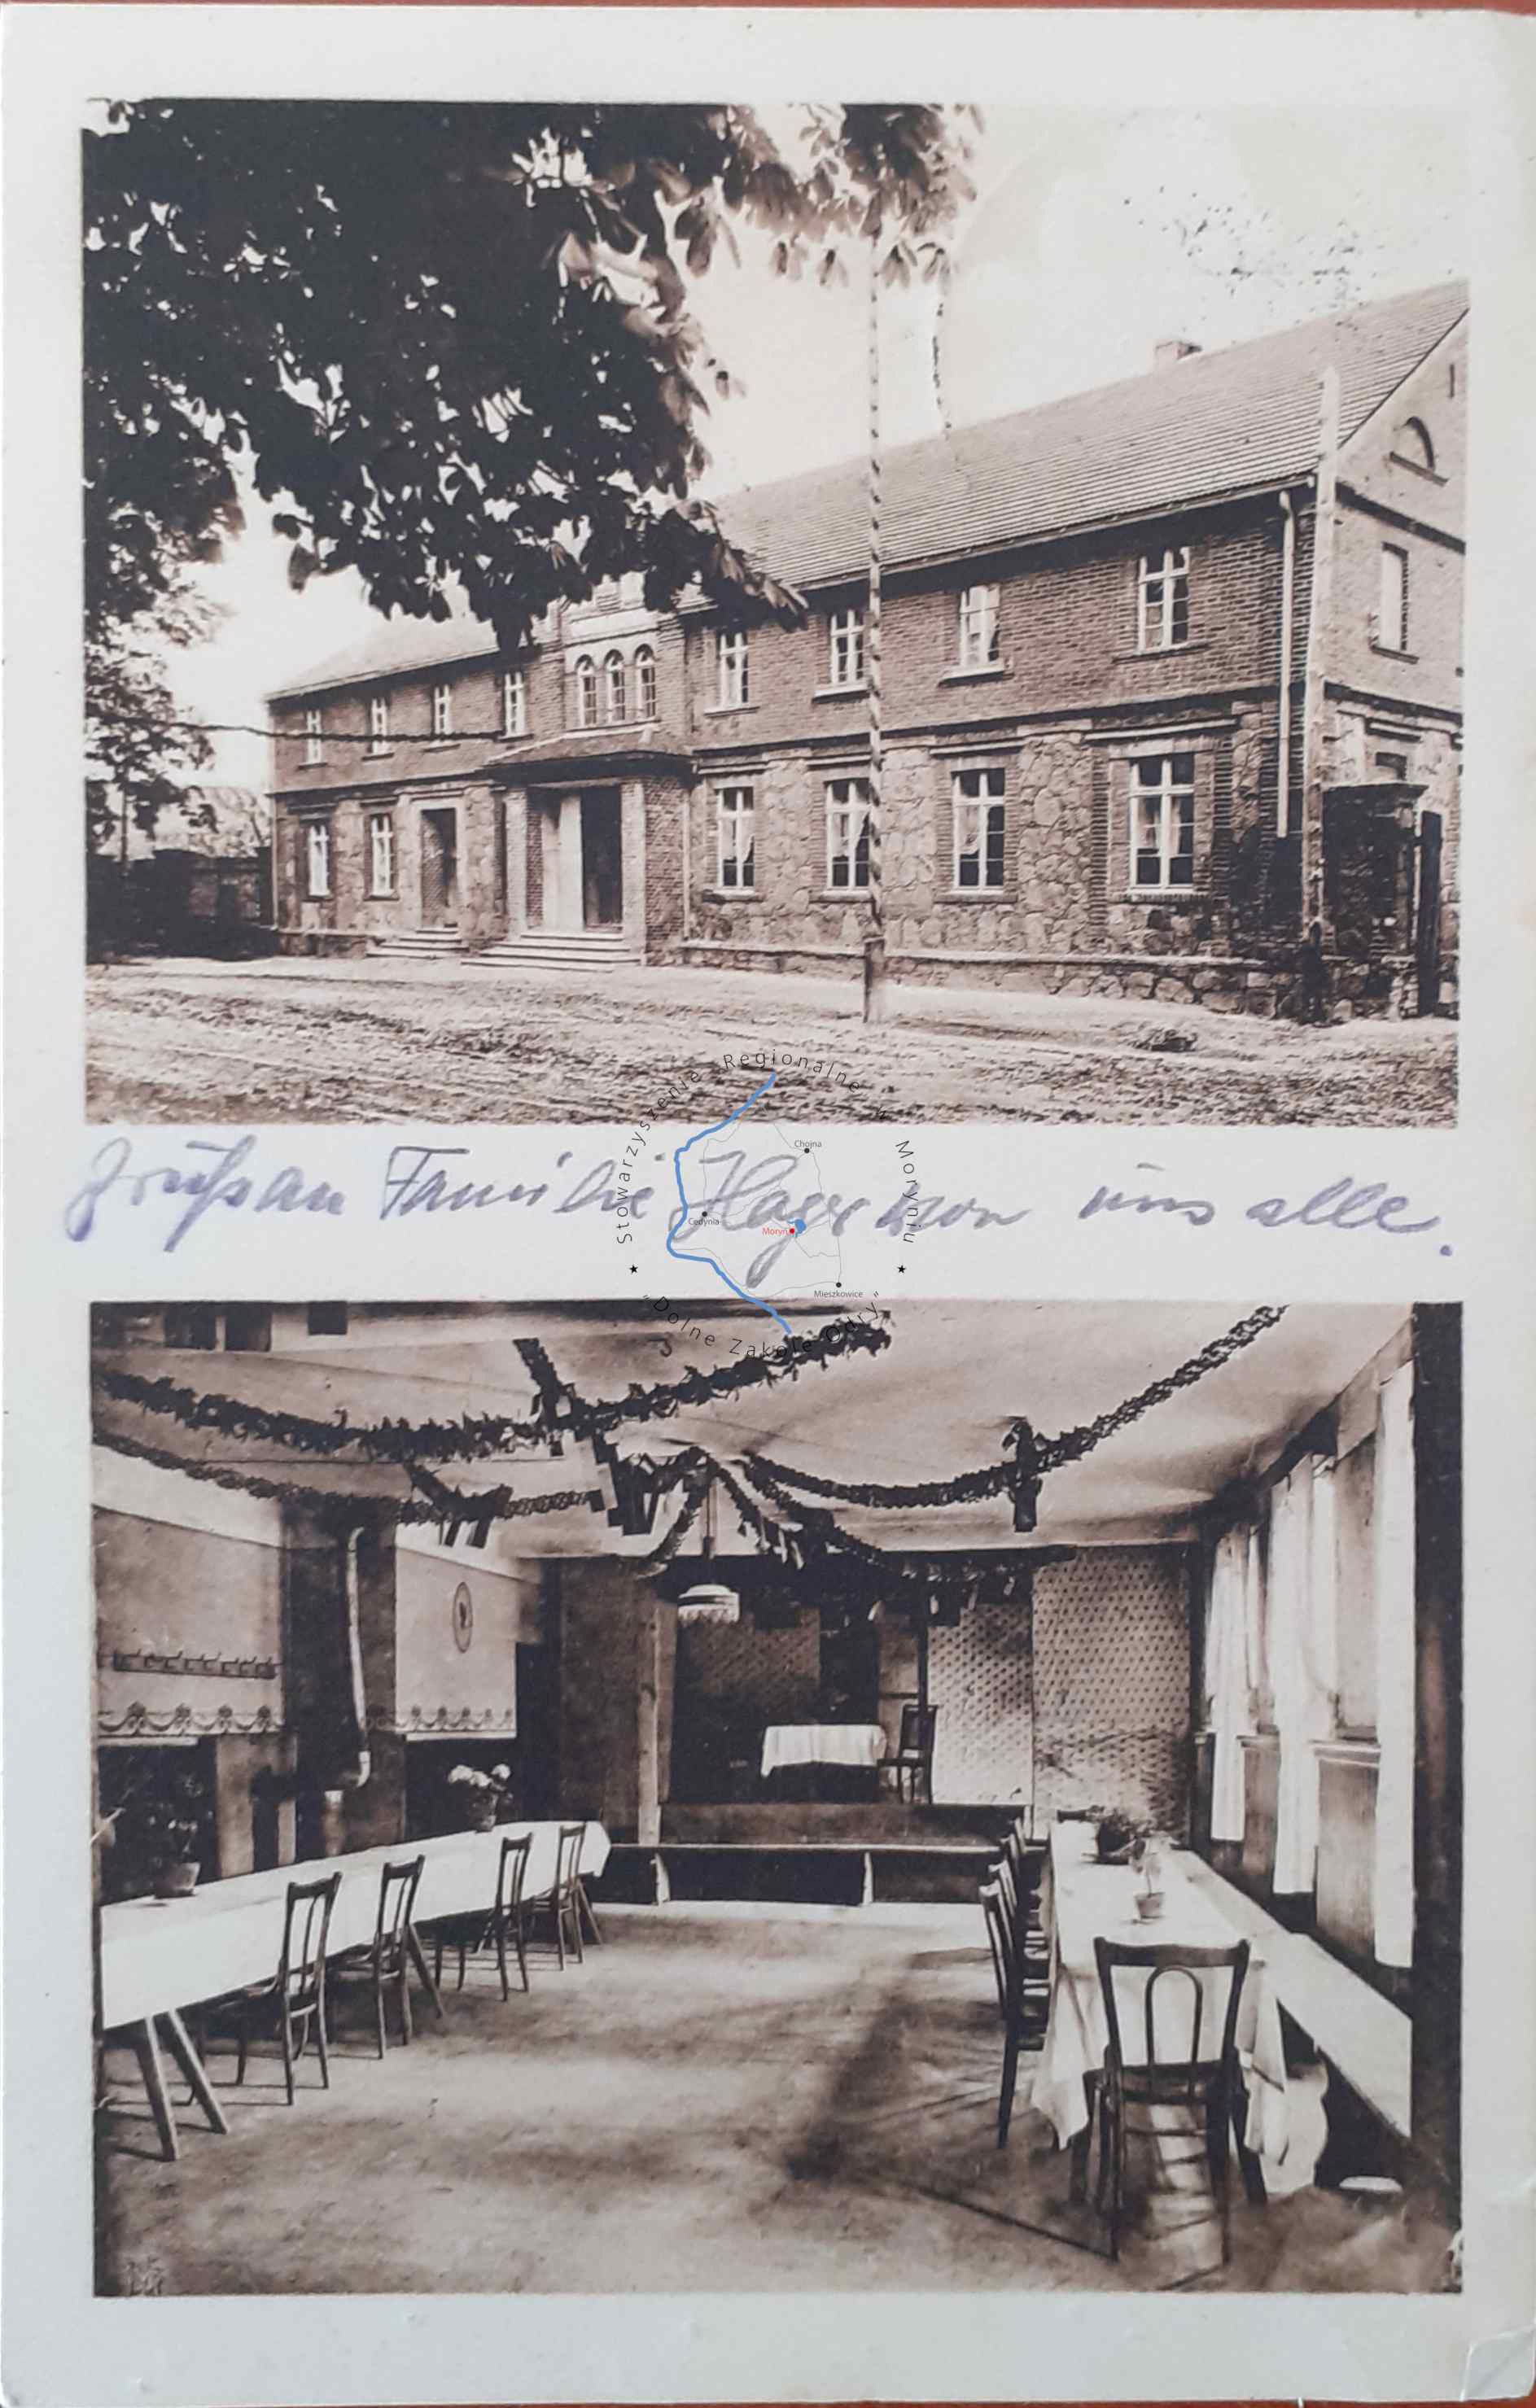 Stowarzyszenie Regionalne w Moryniu
Chojna
Gruß an Familie Hager von uns alle.
Cedynia
Moryń
Mieszkowice
"Dolne Zakole Odry"